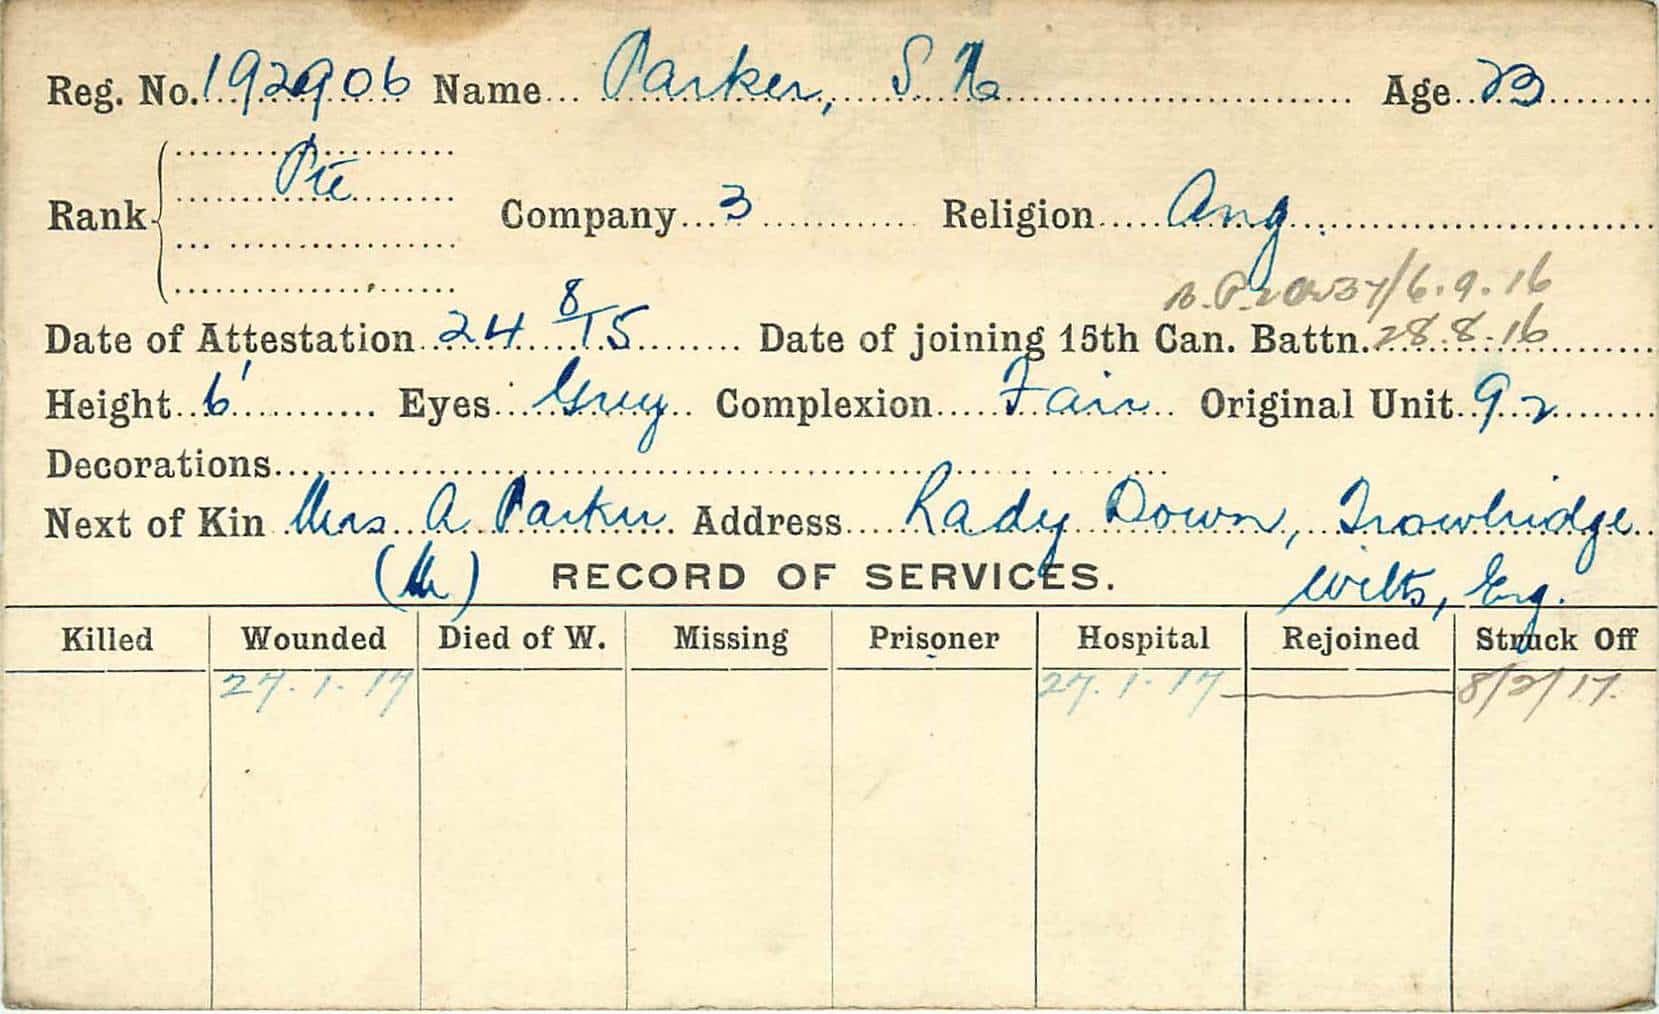 Reg. No. 192906 Name Parker, S N Age 23
Pte
Rank Company 3 Religion Ang.
37/6.9.16
Date of Attestation 24 8/15 Date of joining 15th Can. Battn. 28.8.16
Height 6' Eyes Grey Complexion Fair Original Unit 92
Decorations
Next of Kin Mrs A Parker Address Rady Down, Trowbridge
(M) RECORD OF SERVICES. Wilts, Eng.
Killed Wounded Died of W. Missing Prisoner Hospital Rejoined Struck Off
27.1.17 27.1.17 8/2/17.